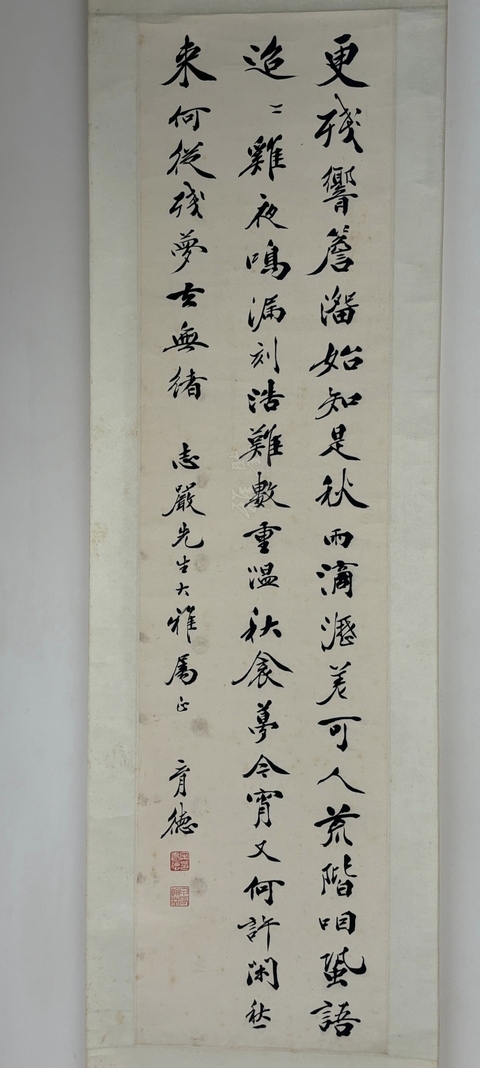 更殘響簷溜始知是秋雨滴瀝差可人荒階咽蛩語
迨〻雞夜鳴漏刻浩難數重温秋衾夢今宵又何許閑愁
來何從殘夢去無緒 志嚴先生大雅屬正 育德